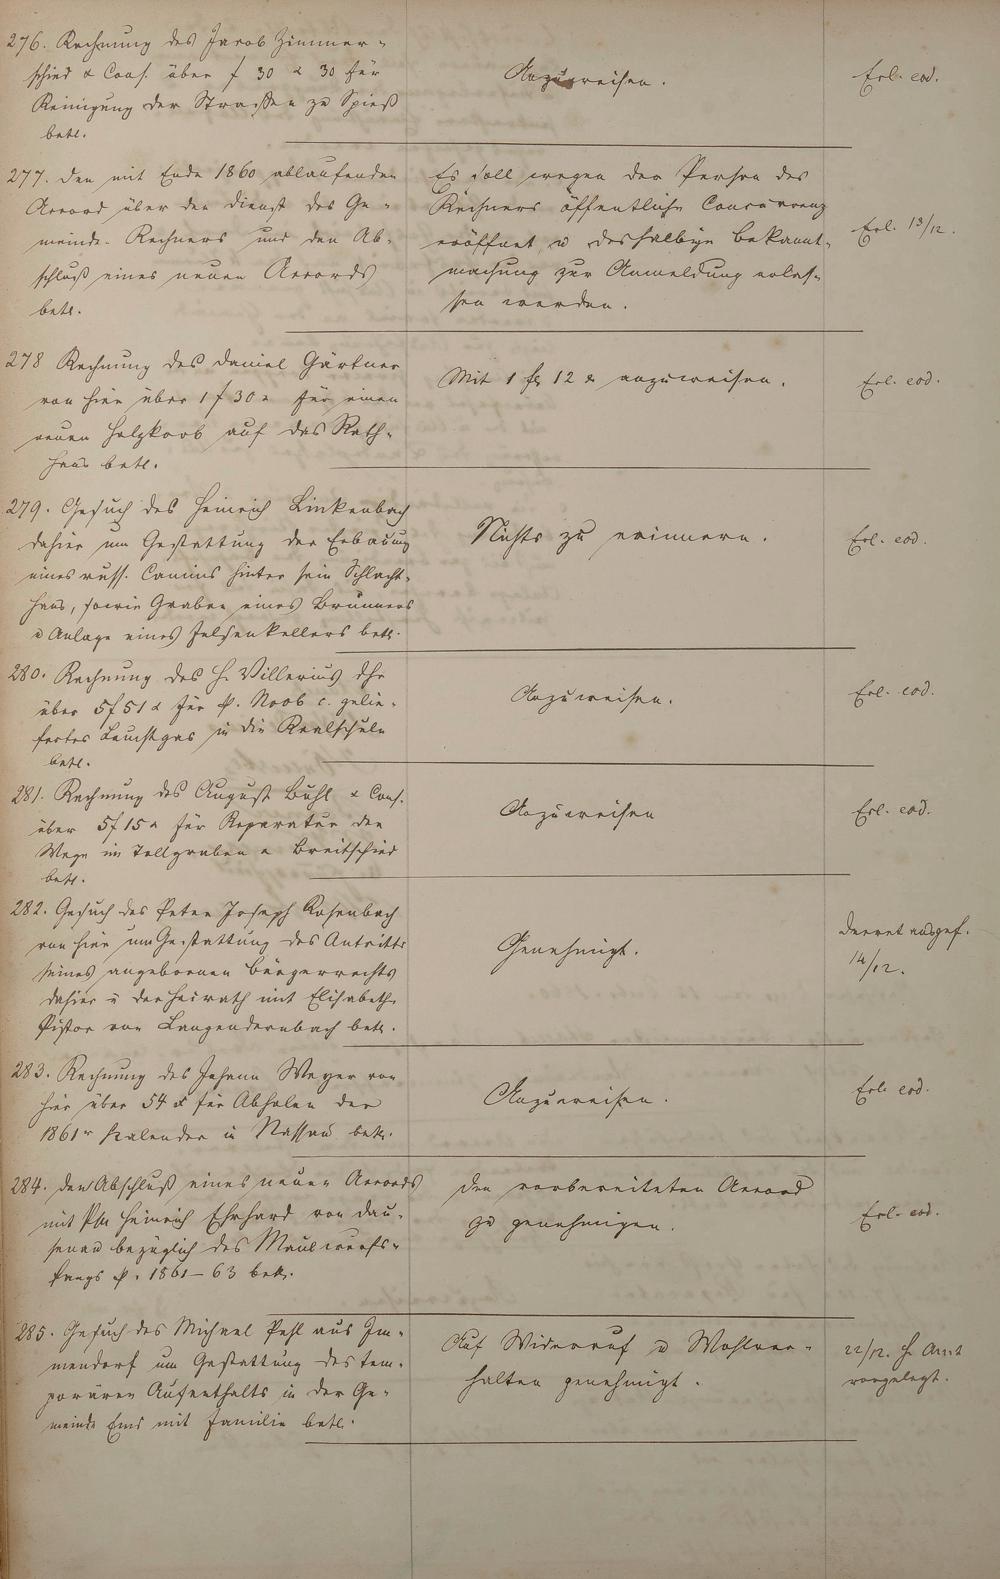 276. Rechnung des Jacob Zimmer-
schied & Cons. über f 30 x 30 für
Reinigung der Strassen zu Spieß
betr.
Anzuweisen.
Erl. eod.
277. Den mit Ende 1860 ablaufenden
Accord über den Dienst des Ge-
meinde-Rechners und den Ab-
schluß eines neuen Accords
betr.
Es soll wegen der Person des
Rechners öffentliche Concurrenz
eröffnet u deshalbige Bekannt-
machung zur Anmeldung erlas-
sen werden.
Erl. 13/12.
278 Rechnung des Daniel Gärtner
von hier über 1 f 30 x für einen
neuen Holzkorb auf das Rath-
haus betr.
Mit 1 fl 12 x anzuweisen.
Erl. eod.
279. Gesuch des Heinrich Linkenbach
dahier um Gestattung der Erbauung
eines russ. Camins hinter sein Schlacht-
haus, sowie Graben eines Brunnens
u Anlage eines Felsenkellers betr.
Nichts zu erinnern.
Erl. eod.
280. Rechnung des H. Villerius dhr
über 5 f 51 x für p. Noob c. gelie-
fertes Leuchtgas in die Realschule
betr.
Anzuweisen.
Erl. eod.
281. Rechnung des August Buhl & Cons.
über 5 f 15 x für Reparatur der
Wege im Tellgraben u Breitschied
betr.
Anzuweisen
Erl. eod.
282. Gesuch des Peter Joseph Rosenbach
von hier um Gestattung des Antritts
seines angebornen Bürgerrechts
dahier u der Heirath mit Elisabeth
Pistor von Langendernbach betr.
Genehmigt.
Decret ausgef.
14/12.
283. Rechnung des Johann Weyer von
hier über 54 x für Abholen der
1861r Kalender in Nassau betr.
Anzuweisen.
Erl. eod.
284. Den Abschluß eines neuen Accords
mit Phil. Heinrich Ehrhard von Dau-
senau bezüglich des Maulwurfs-
fangs p. 1861-63 betr.
Den vorbereiteten Accord
zu genehmigen.
Erl. eod.
285. Gesuch des Michael Pehl aus Im-
mendorf um Gestattung des tem-
porären Aufenthalts in der Ge-
meinde Ems mit Familie betr.
Auf Widerruf u Wohlver-
halten genehmigt.
22/12. H. Amt
vorgelegt.